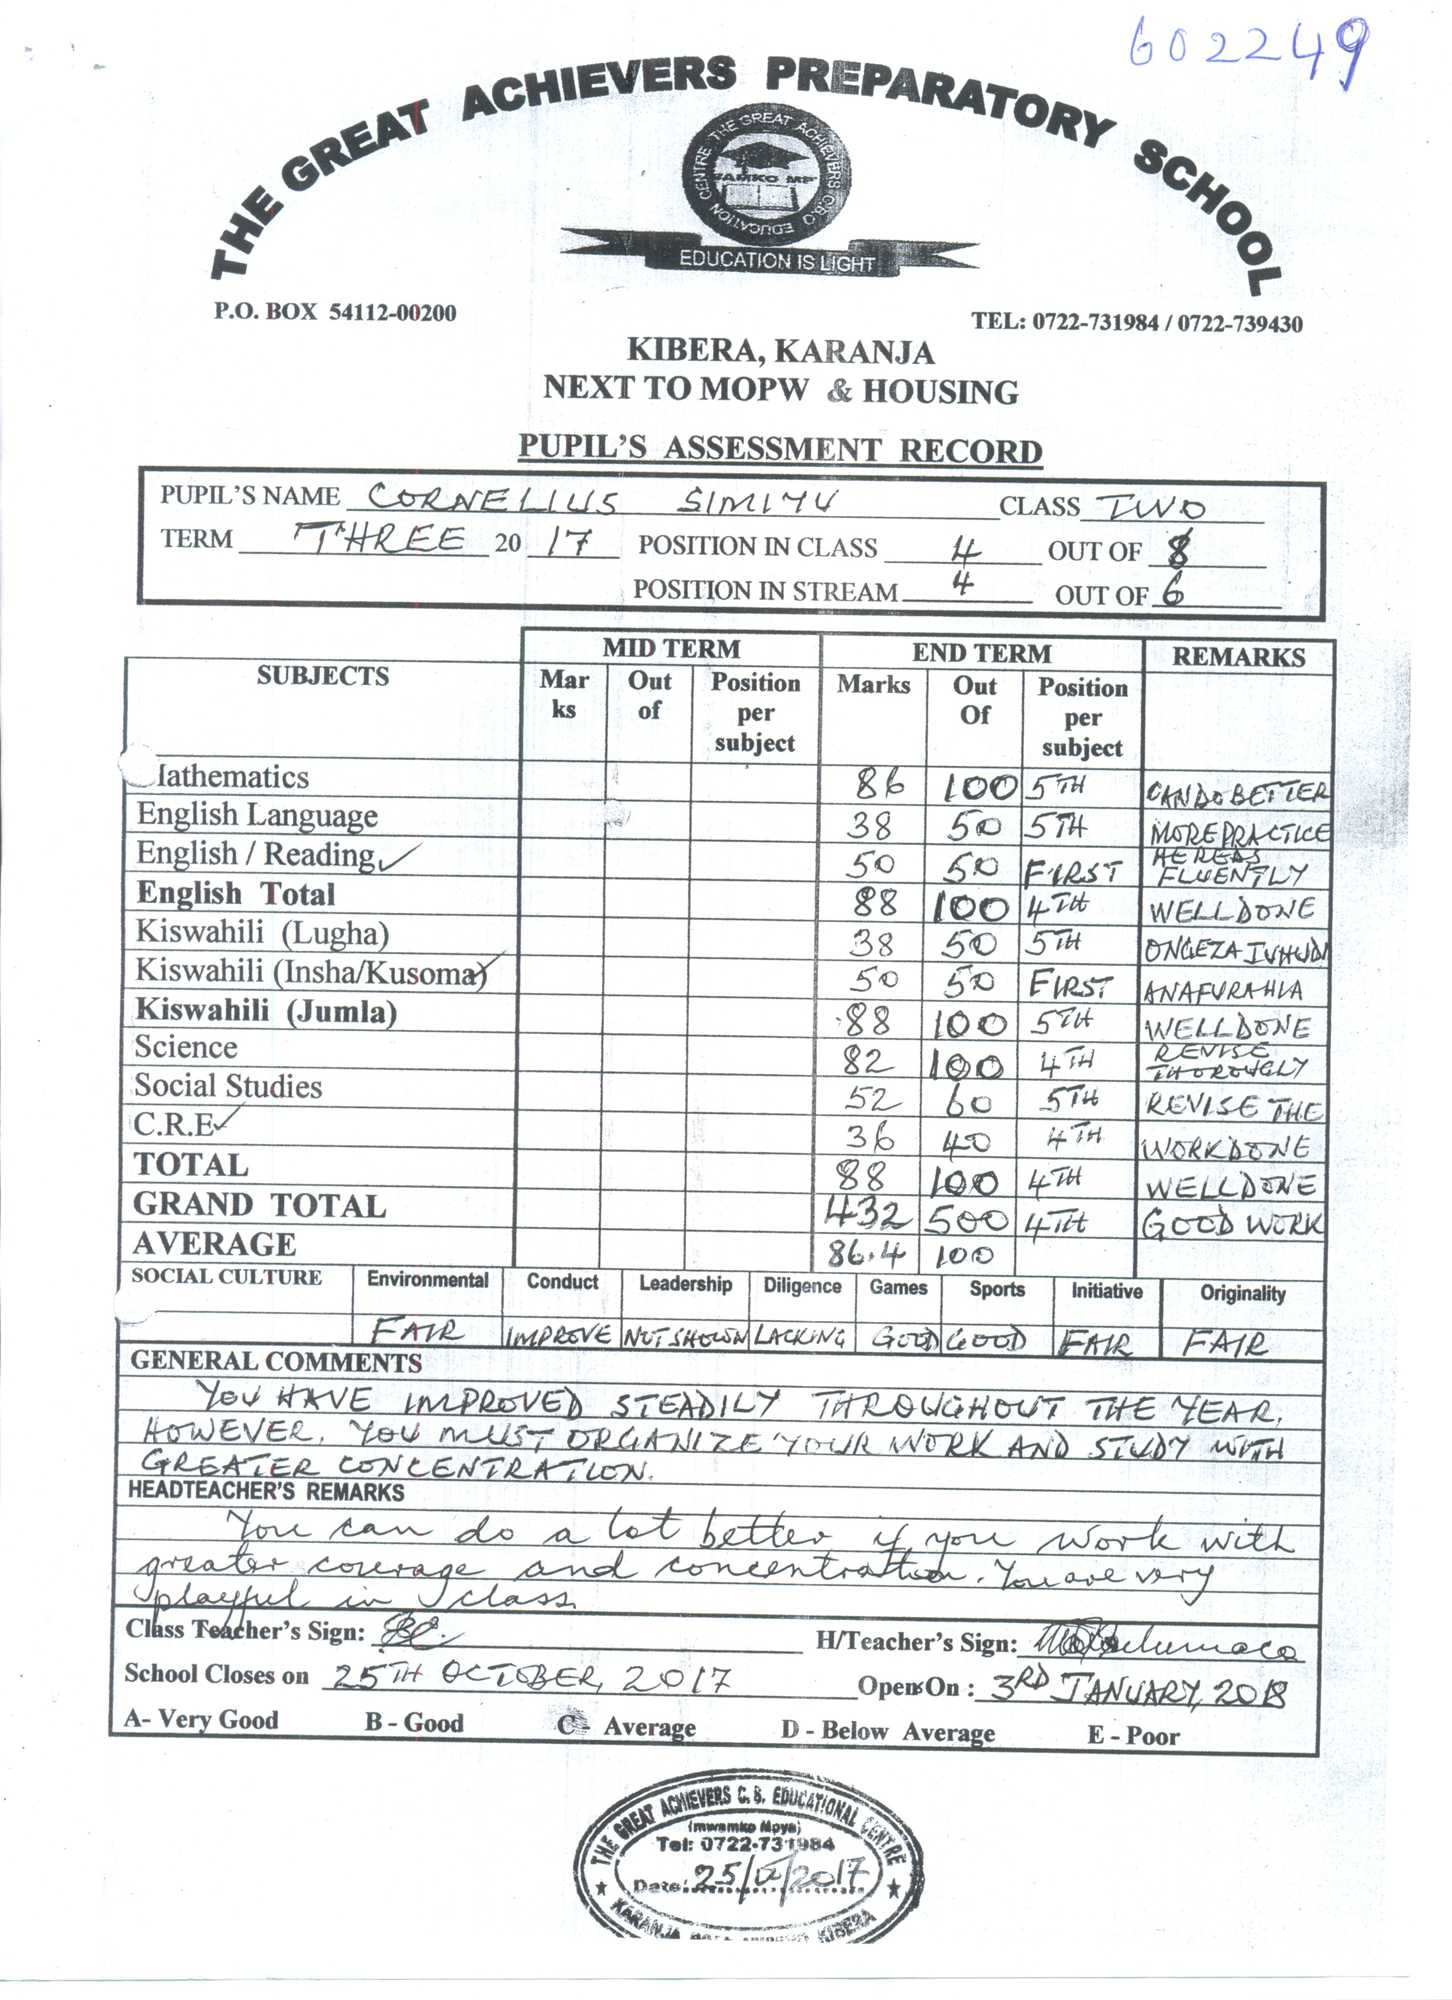 602249
THE GREAT ACHIEVERS PREPARATORY SCHOOL
THE GREAT ACHIEVERS C.B.O EDUCATION CENTRE
EDUCATION IS LIGHT
P.O. BOX 54112-00200
TEL: 0722-731984 / 0722-739430
KIBERA, KARANJA
NEXT TO MOPW & HOUSING
PUPIL'S ASSESSMENT RECORD
PUPIL'S NAME CORNELIUS SIMIYU CLASS TWO
TERM THREE 20 17 POSITION IN CLASS 4 OUT OF 8
POSITION IN STREAM 4 OUT OF 6
MID TERM END TERM REMARKS
SUBJECTS Mar ks Out of Position per subject Marks Out Of Position per subject
Mathematics 86 100 5TH CAN DO BETTER
English Language 38 50 5TH MORE PRACTICE
English / Reading 50 50 FIRST HE READS FLUENTLY
English Total 88 100 4TH WELL DONE
Kiswahili (Lugha) 38 50 5TH ONGEZA JUHUDI
Kiswahili (Insha/Kusoma) 50 50 FIRST ANAFURAHIA
Kiswahili (Jumla) 88 100 5TH WELL DONE
Science 82 100 4TH REVISE THOROUGLY
Social Studies 52 60 5TH REVISE THE
C.R.E 36 40 4TH WORK DONE
TOTAL 88 100 4TH WELL DONE
GRAND TOTAL 432 500 4TH GOOD WORK
AVERAGE 86.4 100
SOCIAL CULTURE Environmental Conduct Leadership Diligence Games Sports Initiative Originality
FAIR IMPROVE NOT SHOWN LACKING GOOD GOOD FAIR FAIR
GENERAL COMMENTS
YOU HAVE IMPROVED STEADILY THROUGHOUT THE YEAR.
HOWEVER, YOU MUST ORGANIZE YOUR WORK AND STUDY WITH
GREATER CONCENTRATION.
HEADTEACHER'S REMARKS
You can do a lot better if you work with
greater courage and concentration. You are very
playful in class.
Class Teacher's Sign: H/Teacher's Sign:
School Closes on 25TH OCTOBER, 2017 Opens On : 3RD JANUARY, 2018
A- Very Good B - Good C - Average D - Below Average E - Poor
THE GREAT ACHIEVERS C. B. EDUCATIONAL CENTRE
(mwamko Mpya)
Tel: 0722-731984
Date: 25/10/2017
KARANJA KIBERA